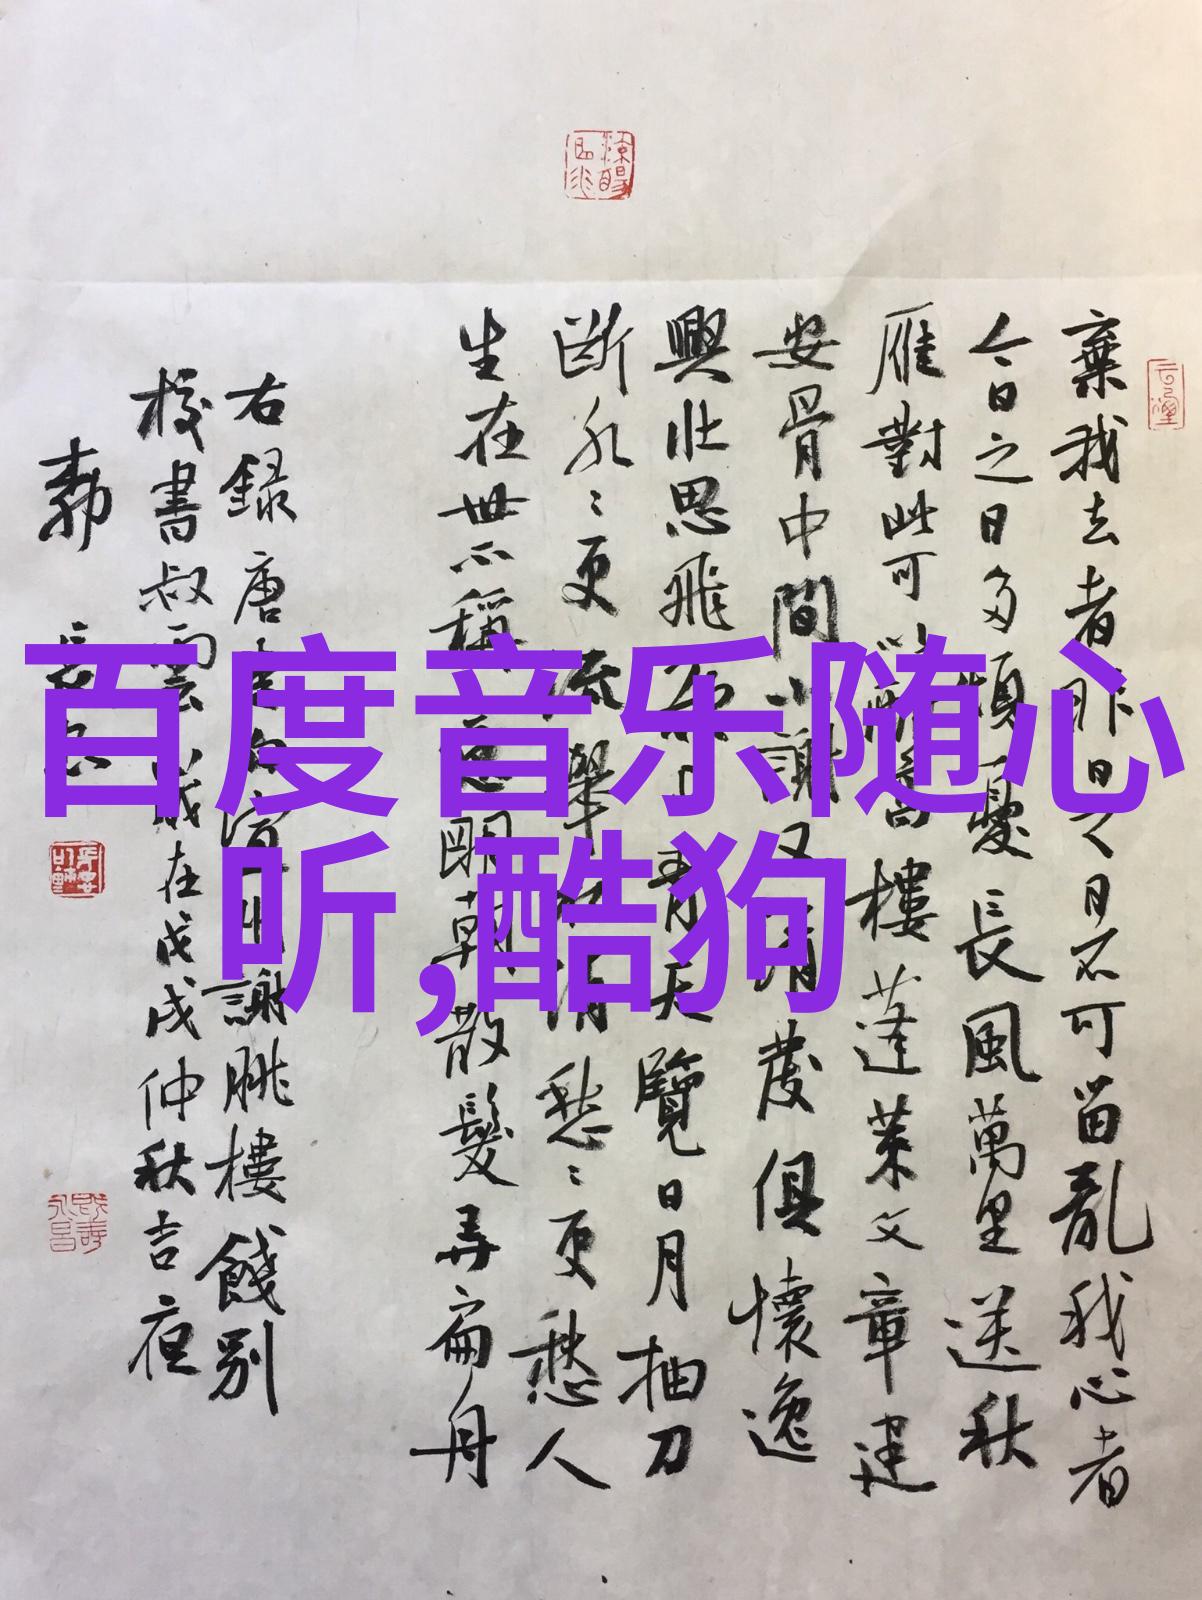 棄我去者昨日之日不可留亂我心者
今日之日多煩憂長風萬里送秋
雁對此可以酣高樓蓬萊文章建
安骨中間小謝又清發俱懷逸
興壯思飛欲上青天覽日月抽刀
斷水〻更流舉杯消愁〻更愁人
生在世不稱意明朝散髮弄扁舟
右録唐李白宣州謝朓樓餞別
校書叔雲歲在戊戌仲秋吉夜
百度音乐随心
听,酷狗